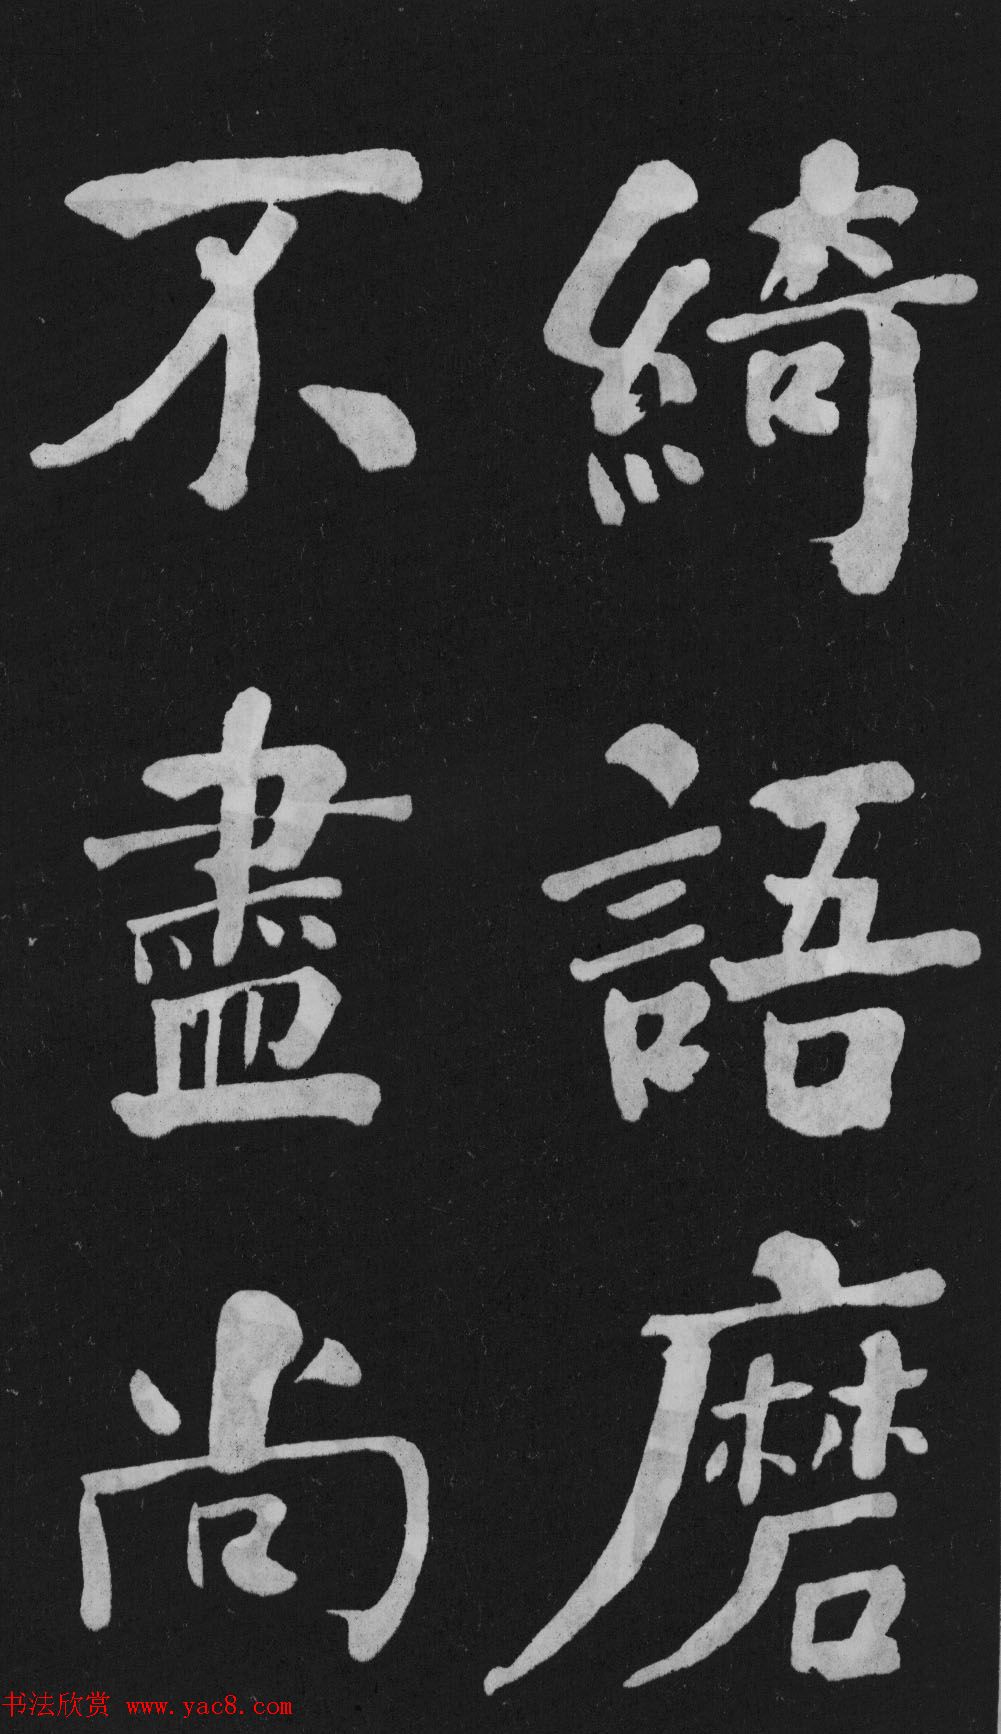 綺語磨
不盡尚
书法欣赏 www.yac8.com